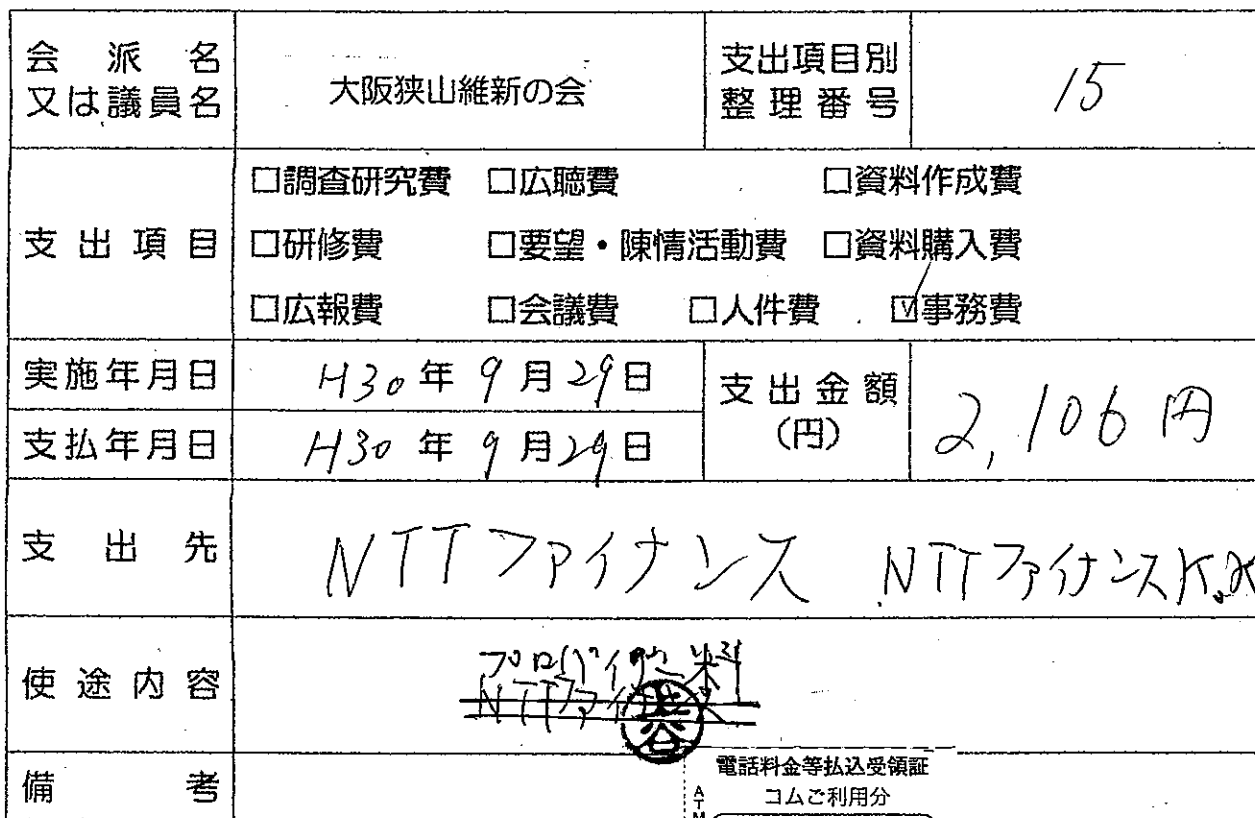 会派名
又は議員名
大阪狭山維新の会
支出項目別
整理番号
15
支出項目
□調査研究費 □広聴費 □資料作成費
□研修費 □要望・陳情活動費 □資料購入費
□広報費 □会議費 □人件費 ☑事務費
実施年月日
H30年9月29日
支払年月日
H30年9月29日
支出金額
(円)
2,106円
支出先
NTTファイナンス NTTファイナンスK.K
使途内容
プロバイダー料
NTTファイナンス
備考
電話料金等払込受領証
コムご利用分
ATM